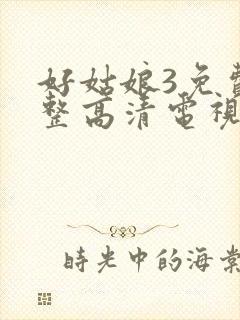 好姑娘3免費
整高清電視
時光中的海棠